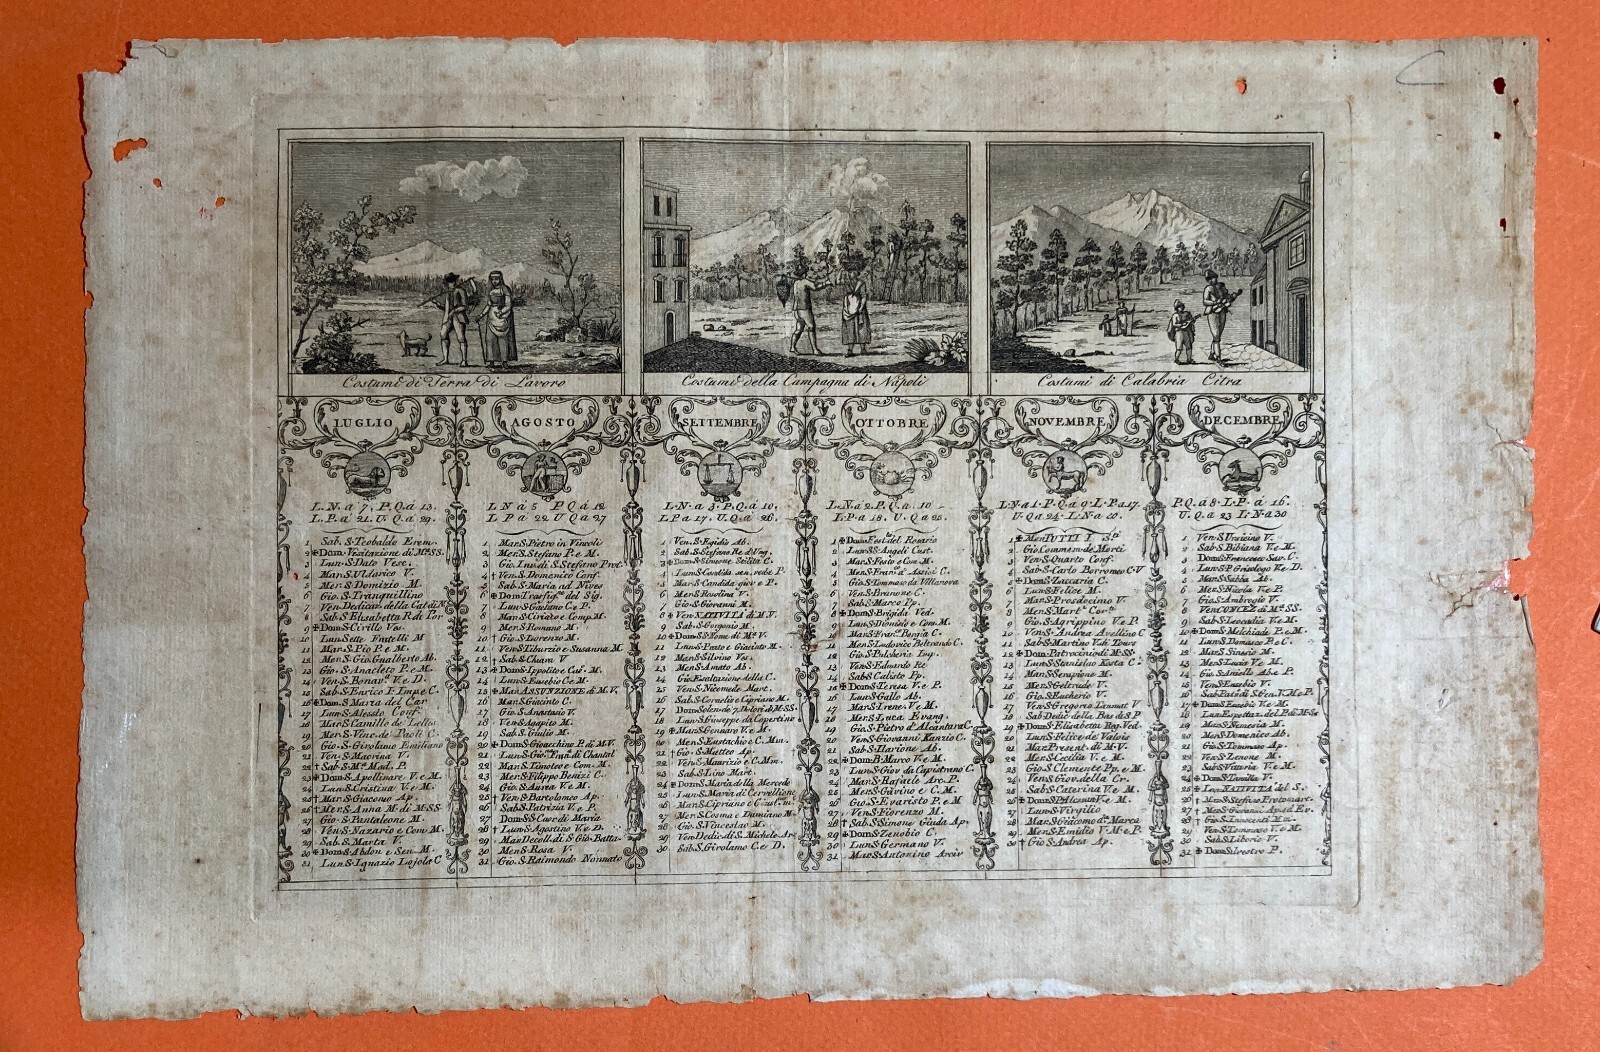 Costumi di Terra di Lavoro
Costumi della Campagna di Napoli
Costumi di Calabria Citra
LUGLIO
L.N.a 7. P.Q.a 13.
L.P.a 21. U.Q.a 29.
1 Sab. S. Teobaldo Erem.
2 Dom. Visitazione di M.SS.
3 Lun. S. Dato Vesc.
4 Mar. S. Uldarico V.
5 Mer. S. Domizio M.
6 Gio. S. Tranquillino
7 Ven. Dedicaz. della Cat. di N.
8 Sab. S. Elisabetta R. di Por
9 Dom. S. Cirillo Ves.
10 Lun. Sette Fratelli M
11 Mar. S. Pio P. e M.
12 Mer. S. Gio. Gualberto Ab.
13 Gio. S. Anacleto P. e M.
14 Ven. S. Bonav. V. e D.
15 Sab. S. Enrico I. Imp. e C.
16 Dom. S. Maria del Car
17 Lun. S. Alessio Conf.
18 Mar. S. Camillo de Lellis
19 Mer. S. Vinc. de Paoli C.
20 Gio. S. Girolamo Emiliano
21 Ven. S. Macrina V.
22 Sab. S. M. Mad. P.
23 Dom. S. Apollinare V. e M.
24 Lun. S. Cristina V. e M.
25 Mar. S. Giacomo Ap.
26 Mer. S. Anna M. di M.SS.
27 Gio. S. Pantaleone M.
28 Ven. S. Nazario e Com. M.
29 Sab. S. Marta V.
30 Dom. S. Abdon e Sen. M.
31 Lun. S. Ignazio Lojola C
AGOSTO
L.N a 5 P.Q a 12
L P a 22 U Q a 27
1 Mar. S. Pietro in Vincoli
2 Mer. S. Stefano P. e M.
3 Gio. Inv. di S. Stefano Prot.
4 Ven. S. Domenico Conf.
5 Sab. S. Maria ad Nives
6 Dom. Trasfig. del Sig.
7 Lun. S. Gaetano C. e P.
8 Mar. S. Ciriaco e Comp. M.
9 Mer. S. Romano M.
10 Gio. S. Lorenzo M.
11 Ven. S. Tiburzio e Susanna M.
12 Sab. S. Chiara V
13 Dom. S. Ippolito e Cas. M.
14 Lun. S. Eusebio C. e M.
15 Mar. ASSUNZIONE di M.V.
16 Mar. S. Giacinto C.
17 Gio. S. Anastasio V.
18 Ven. S. Agapito M.
19 Sab. S. Giulio M.
20 Dom. S. Gioacchino P. di M.V.
21 Lun. S. Gio. Fran. di Chantal
22 Mar. S. Timoteo e Com. M.
23 Mer. S. Filippo Benizi C.
24 Gio. S. Aurea V. e M.
25 Ven. S. Bartolomeo Ap.
26 Sab. S. Patrizia V. e P.
27 Dom. SS. Cuor di Maria
28 Lun. S. Agostino V. e D.
29 Mar. Decoll. di S. Gio. Battis
30 Mer. S. Rosa V.
31 Gio. S. Raimondo Nonnato
SETTEMBRE
L.N.a 3. P.Q.a 10.
L.P.a 17. U.Q.a 26.
1 Ven. S. Egidio Ab.
2 Sab. S. Stefano Re d'Ung.
3 Dom. S. Simone Stilita C.
4 Lun. S. Candida sen. ved. e P.
5 Mar. S. Candida giov. e P.
6 Mer. S. Rosolina V.
7 Gio. S. Giovanni M.
8 Ven. NATIVITA di M.V.
9 Sab. S. Gorgonio M.
10 Dom. SS. Nome di M. V.
11 Lun. S. Proto e Giacinto M.
12 Mar. S. Silvino Ves.
13 Mer. S. Amato Ab.
14 Gio. Esaltazione della C.
15 Ven. S. Nicomede Mart.
16 Sab. S. Cornelio e Cipriano M.
17 Dom. Solen. de 7. Dolori di M.SS.
18 Lun. S. Giuseppe da Copertino
19 Mar. S. Gennaro V. e M.
20 Mer. S. Eustachio e C. Mm.
21 Gio. S. Matteo Ap.
22 Ven. S. Maurizio e C. Mm.
23 Sab. S. Lino Mart.
24 Dom. S. Maria della Mercede
25 Lun. S. Maria di Cervellione
26 Mar. S. Cipriano e Giust. m.
27 Mer. S. Cosma e Damiano M.
28 Gio. S. Vinceslao M.
29 Ven. Dedic. di S. Michele Ar.
30 Sab. S. Girolamo C. e D.
OTTOBRE
L.N.a 2. P.Q.a 10
L.P.a 18. U.Q.a 25.
1 Dom. Fest. del Rosario
2 Lun. SS. Angeli Cust.
3 Mar. S. Festo e Com. M.
4 Mer. S. Fran. d'Assisi C.
5 Gio. S. Tommaso da Villanova
6 Ven. S. Brunone C.
7 Sab. S. Marco Pp.
8 Dom. S. Brigida Ved.
9 Lun. S. Dionisio e Com. M.
10 Mar. S. Fran. Borgia C.
11 Mer. S. Ludovico Beltrando C.
12 Gio. S. Pulcheria Imp.
13 Ven. S. Eduardo Re
14 Sab. S. Calisto Pp.
15 Dom. S. Teresa V. e P.
16 Lun. S. Gallo Ab.
17 Mar. S. Irene V. e M.
18 Mer. S. Luca Evang.
19 Gio. S. Pietro d'Alcantara C.
20 Ven. S. Giovanni Kanzio C.
21 Sab. S. Ilarione Ab.
22 Dom. B. Marco V. e M.
23 Lun. S. Giov. da Capistrano C.
24 Mar. S. Rafaele Arc. P.
25 Mer. S. Gavino e C. M.
26 Gio. S. Evaristo P. e M
27 Ven. S. Fiorenzo M.
28 Sab. S. Simone Giuda Ap.
29 Dom. S. Zenobio C.
30 Lun. S. Germano V.
31 Mar. S. Antonino Arciv
NOVEMBRE
L.N.a 1. P.Q.a 9. L.P.a 17.
U.Q.a 24. L.N.a 20.
1 Mer. TUTTI I S.ti
2 Gio. Commem. de Morti
3 Ven. S. Quarto Conf.
4 Sab. S. Carlo Borromeo C.V
5 Dom. S. Zaccaria C.
6 Lun. S. Felice M.
7 Mar. S. Prosdocimo V.
8 Mer. S. Mart. Cor.ti
9 Gio. S. Agrippino V. e P.
10 Ven. S. Andrea Avellino C
11 Sab. S. Martino V. di Tours
12 Dom. Patrocinio di M.SS.
13 Lun. S. Stanislao Kosta C.
14 Mar. S. Serapione M.
15 Mer. S. Geltrude V.
16 Gio. S. Eucherio V.
17 Ven. S. Gregorio Taumat V
18 Sab. Dedic. della Bas. di S.P
19 Dom. S. Elisabetta Reg. Ved.
20 Lun. S. Felice de Valois
21 Mar. Present. di M.V.
22 Mer. S. Cecilia V. e M.
23 Gio. S. Clemente Pp. e M.
24 Ven. S. Giov. della Cr.
25 Sab. S. Caterina V. e M.
26 Dom. S. Delcuna V. e M.
27 Lun. S. Virgilio
28 Mar. S. Giacomo d. Marca
29 Mer. S. Emidio V. M. e P.
30 Gio. S. Andrea Ap.
DECEMBRE
P.Q.a 8. L.P.a 16.
U.Q.a 23 L.N.a 30
1 Ven. S. Ursicino V.
2 Sab. S. Bibiana V. e M.
3 Dom. S. Francesco Sav. C.
4 Lun. S. P. Grisologo V. e D.
5 Mar. S. Sabba Ab.
6 Mer. S. Nicola V. e P.
7 Gio. S. Ambrogio V.
8 Ven. CONCEZ. di M. SS.
9 Sab. S. Leocadia V. e M.
10 Dom. S. Melchiade P. e M.
11 Lun. S. Damaso P. e C.
12 Mar. S. Sinesio M.
13 Mer. S. Lucia V. e M.
14 Gio. S. Aniello Ab. e P.
15 Ven. S. Eusebio V.
16 Sab.
17 Dom. S. Eusebio V. e M.
18 Lun. Espettaz. del P. di M.SS
19 Mar. S. Nemesia M.
20 Mer. S. Domenico Ab.
21 Gio. S. Tommaso Ap.
22 Ven. S. Zenone M.
23 Sab. S. Vittoria V. e M.
24 Dom. S. Tarsilla V.
25 Lun. NATIVITA del S.
26 Mar. S. Stefano Protomart.
27 Mer. S. Giovanni Ap. ed Ev.
28 Gio. S. Innocenti M.
29 Ven. S. Tommaso V. e M.
30 Sab. S. Liborio V.
31 Dom. S. Silvestro P.